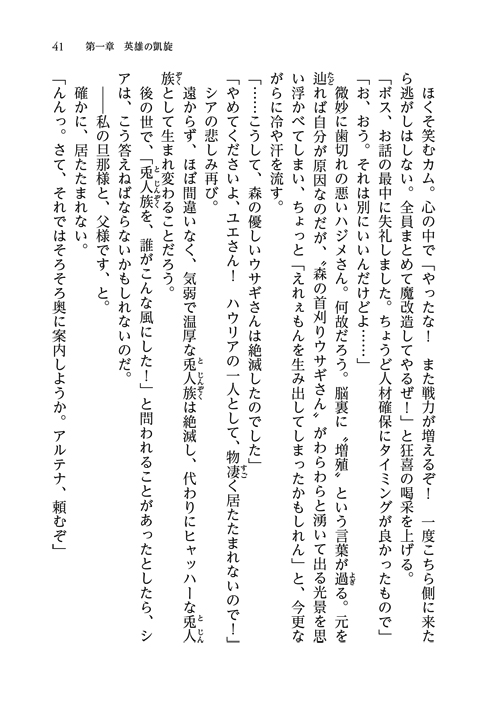 41　第一章　英雄の凱旋
　ほくそ笑むカム。心の中で「やったな！　また戦力が増えるぞ！　一度こちら側に来た
ら逃がしはしない。全員まとめて魔改造してやるぜ！」と狂喜の喝采を上げる。
「ボス、お話の最中に失礼しました。ちょうど人材確保にタイミングが良かったもので」
「お、おう。それは別にいいんだけどよ……」
　微妙に歯切れの悪いハジメさん。何故だろう。脳裏に〝増殖〟という言葉が過る。元を
辿れば自分が原因なのだが、〝森の首刈りウサギさん〟がわらわらと湧いて出る光景を思
い浮かべてしまい、ちょっと「えれぇもんを生み出してしまったかもしれん」と、今更な
がらに冷や汗を流す。
「……こうして、森の優しいウサギさんは絶滅したのでした」
「やめてくださいよ、ユエさん！　ハウリアの一人として、物凄く居たたまれないので！」
　シアの悲しみ再び。
　遠からず、ほぼ間違いなく、気弱で温厚な兎人族は絶滅し、代わりにヒャッハーな兎人
族として生まれ変わることだろう。
　後の世で、「兎人族を、誰がこんな風にした！」と問われることがあったとしたら、シ
アは、こう答えねばならないかもしれないのだ。
　――私の旦那様と、父様です、と。
　確かに、居たたまれない。
「んんっ。さて、それではそろそろ奥に案内しようか。アルテナ、頼むぞ」